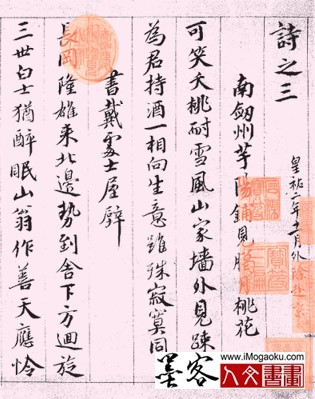 詩之三
皇祐二年十一月外除赴京
南劒州芋陽鋪見臘月桃花
可笑夭桃耐雪風山家墻外見踈
為君持酒一相向生意雖殊寂寞同
書戴處士屋壁
長岡隆雄來北邊勢到舍下方迴旋
三世白士猶醉眠山翁作善天應怜
墨客
www.iMogaoku.com
人文書畫